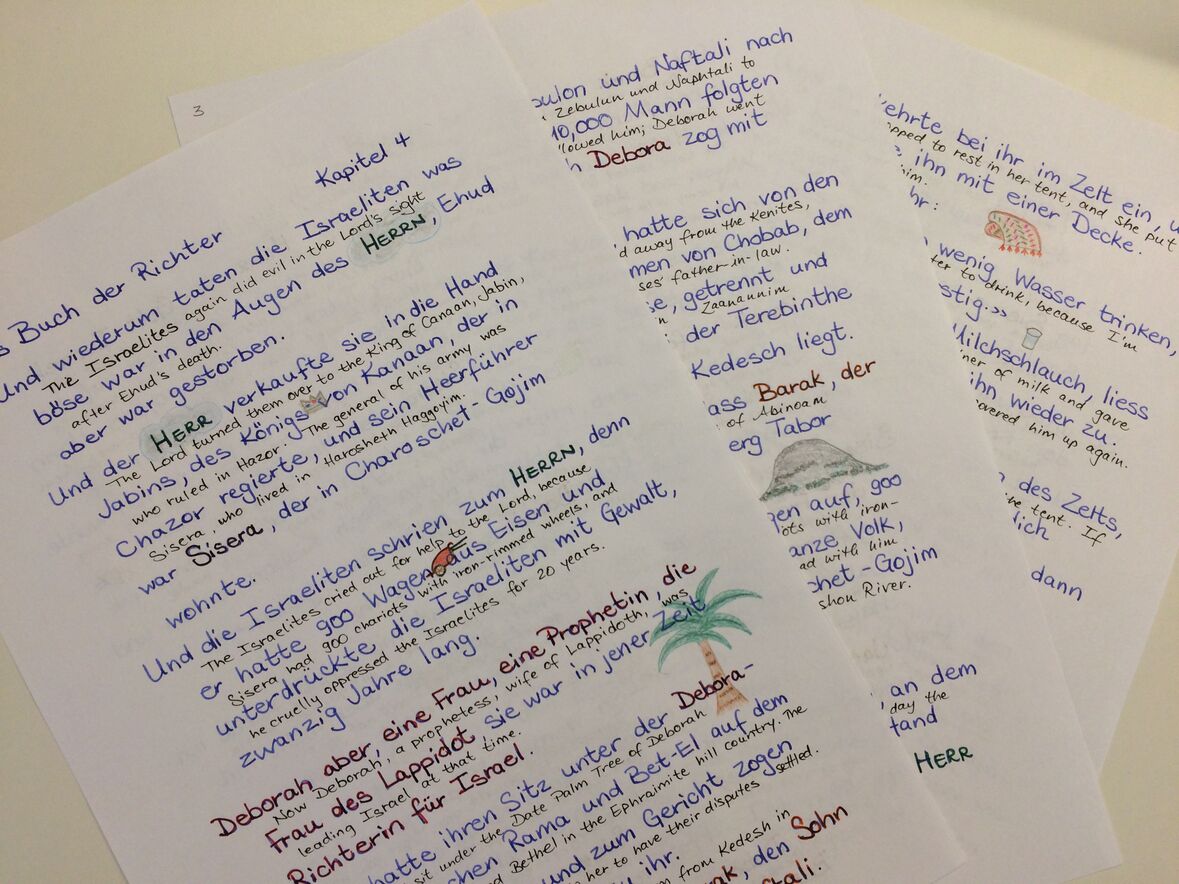 3
Kapitel 4
s Buch der Richter
Und wiederum taten die Israeliten was
The Israelites again did evil in the Lord's sight
böse war in den Augen des HERRN, Ehud
after Ehud's death.
aber war gestorben.
Und der HERR verkaufte sie in die Hand
The Lord turned them over to the King of Canaan, Jabin,
Jabins, des Königs von Kanaan, der in
who ruled in Hazor. The general of his army was
Chazor regierte, und sein Heerführer
Sisera who lived in Harosheth Haggoyim.
war Sisera, der in Charoschet-Gojim
wohnte.
Und die Israeliten schrien zum HERRN, denn
The Israelites cried out for help to the Lord, because
er hatte 900 Wagen aus Eisen und
Sisera had 900 chariots with iron-rimmed wheels, and
unterdrückte die Israeliten mit Gewalt,
he cruelly oppressed the Israelites for 20 years.
zwanzig Jahre lang.
Deborah aber, eine Frau, eine Prophetin, die
Now Deborah, a prophetess, wife of Lappidoth, was
Frau des Lappidot, sie war in jener Zeit
leading Israel at that time.
Richterin für Israel.
hatte ihren Sitz unter der Debora-
sit under the Date Palm Tree of Deborah
chen Rama und Bet-El auf dem
d Bethel in the Ephraimite hill country. The
und zum Gericht zogen
her to have their disputes settled.
ihr.
m from Kedesh in
rak, den Sohn
ftali.
bulon und Naftali nach
Zebulun und Naphtali to
10,000 Mann folgten
llowed him; Deborah went
h Debora zog mit
hatte sich von den
d away from the Kenites,
men von Chobab, dem
ses' father-in-law.
se, getrennt und
n Zaanannim
der Terebinthe
Kedesch liegt.
ass Barak, der
of Abinoam
erg Tabor
gen auf, 900
ots with iron-
anze Volk,
ad with him
chet-Gojim
shon River.
, an dem
day the
tand
HERR
kehrte bei ihr im Zelt ein, u
opped to rest in her tent, and she put
e ihn mit einer Decke.
him.
hr:
wenig Wasser trinken,
ter to drink, because I'm
stig.>>
Milchschlauch, liess
iner of milk and gave
ihn wieder zu.
covered him up again.
n des Zelts,
he tent. If
lich
dann